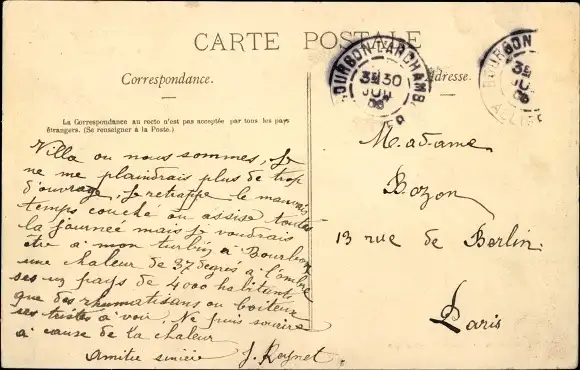 CARTE POSTALE
Correspondance.
Adresse.
La Correspondance au recto n'est pas acceptée par tous les pays
étrangers. (Se renseigner à la Poste.)
BOURBON-L'ARCHAMB
3E 30
JUIL
06
ALLIER
BOURBON
3E
JUI
06
ALLIER
Villa ou nous sommes, Je
ne me plaindrais plus de trop
d'ouvrage, Je retrappe le mauvais
temps couché ou assise toutes
la journée mais je voudrais
être à mon turbin, a Bourbon
une chaleur de 37 degrés a l'ombre
ses un pays de 4000 habitants
que des rhumatisans ou boiteux
ses triste a voir. Ne puis sourire
a cause de la chaleur
Amitie sincère J. Reynet.
Madame
Bozon
13 rue de Berlin.
Paris